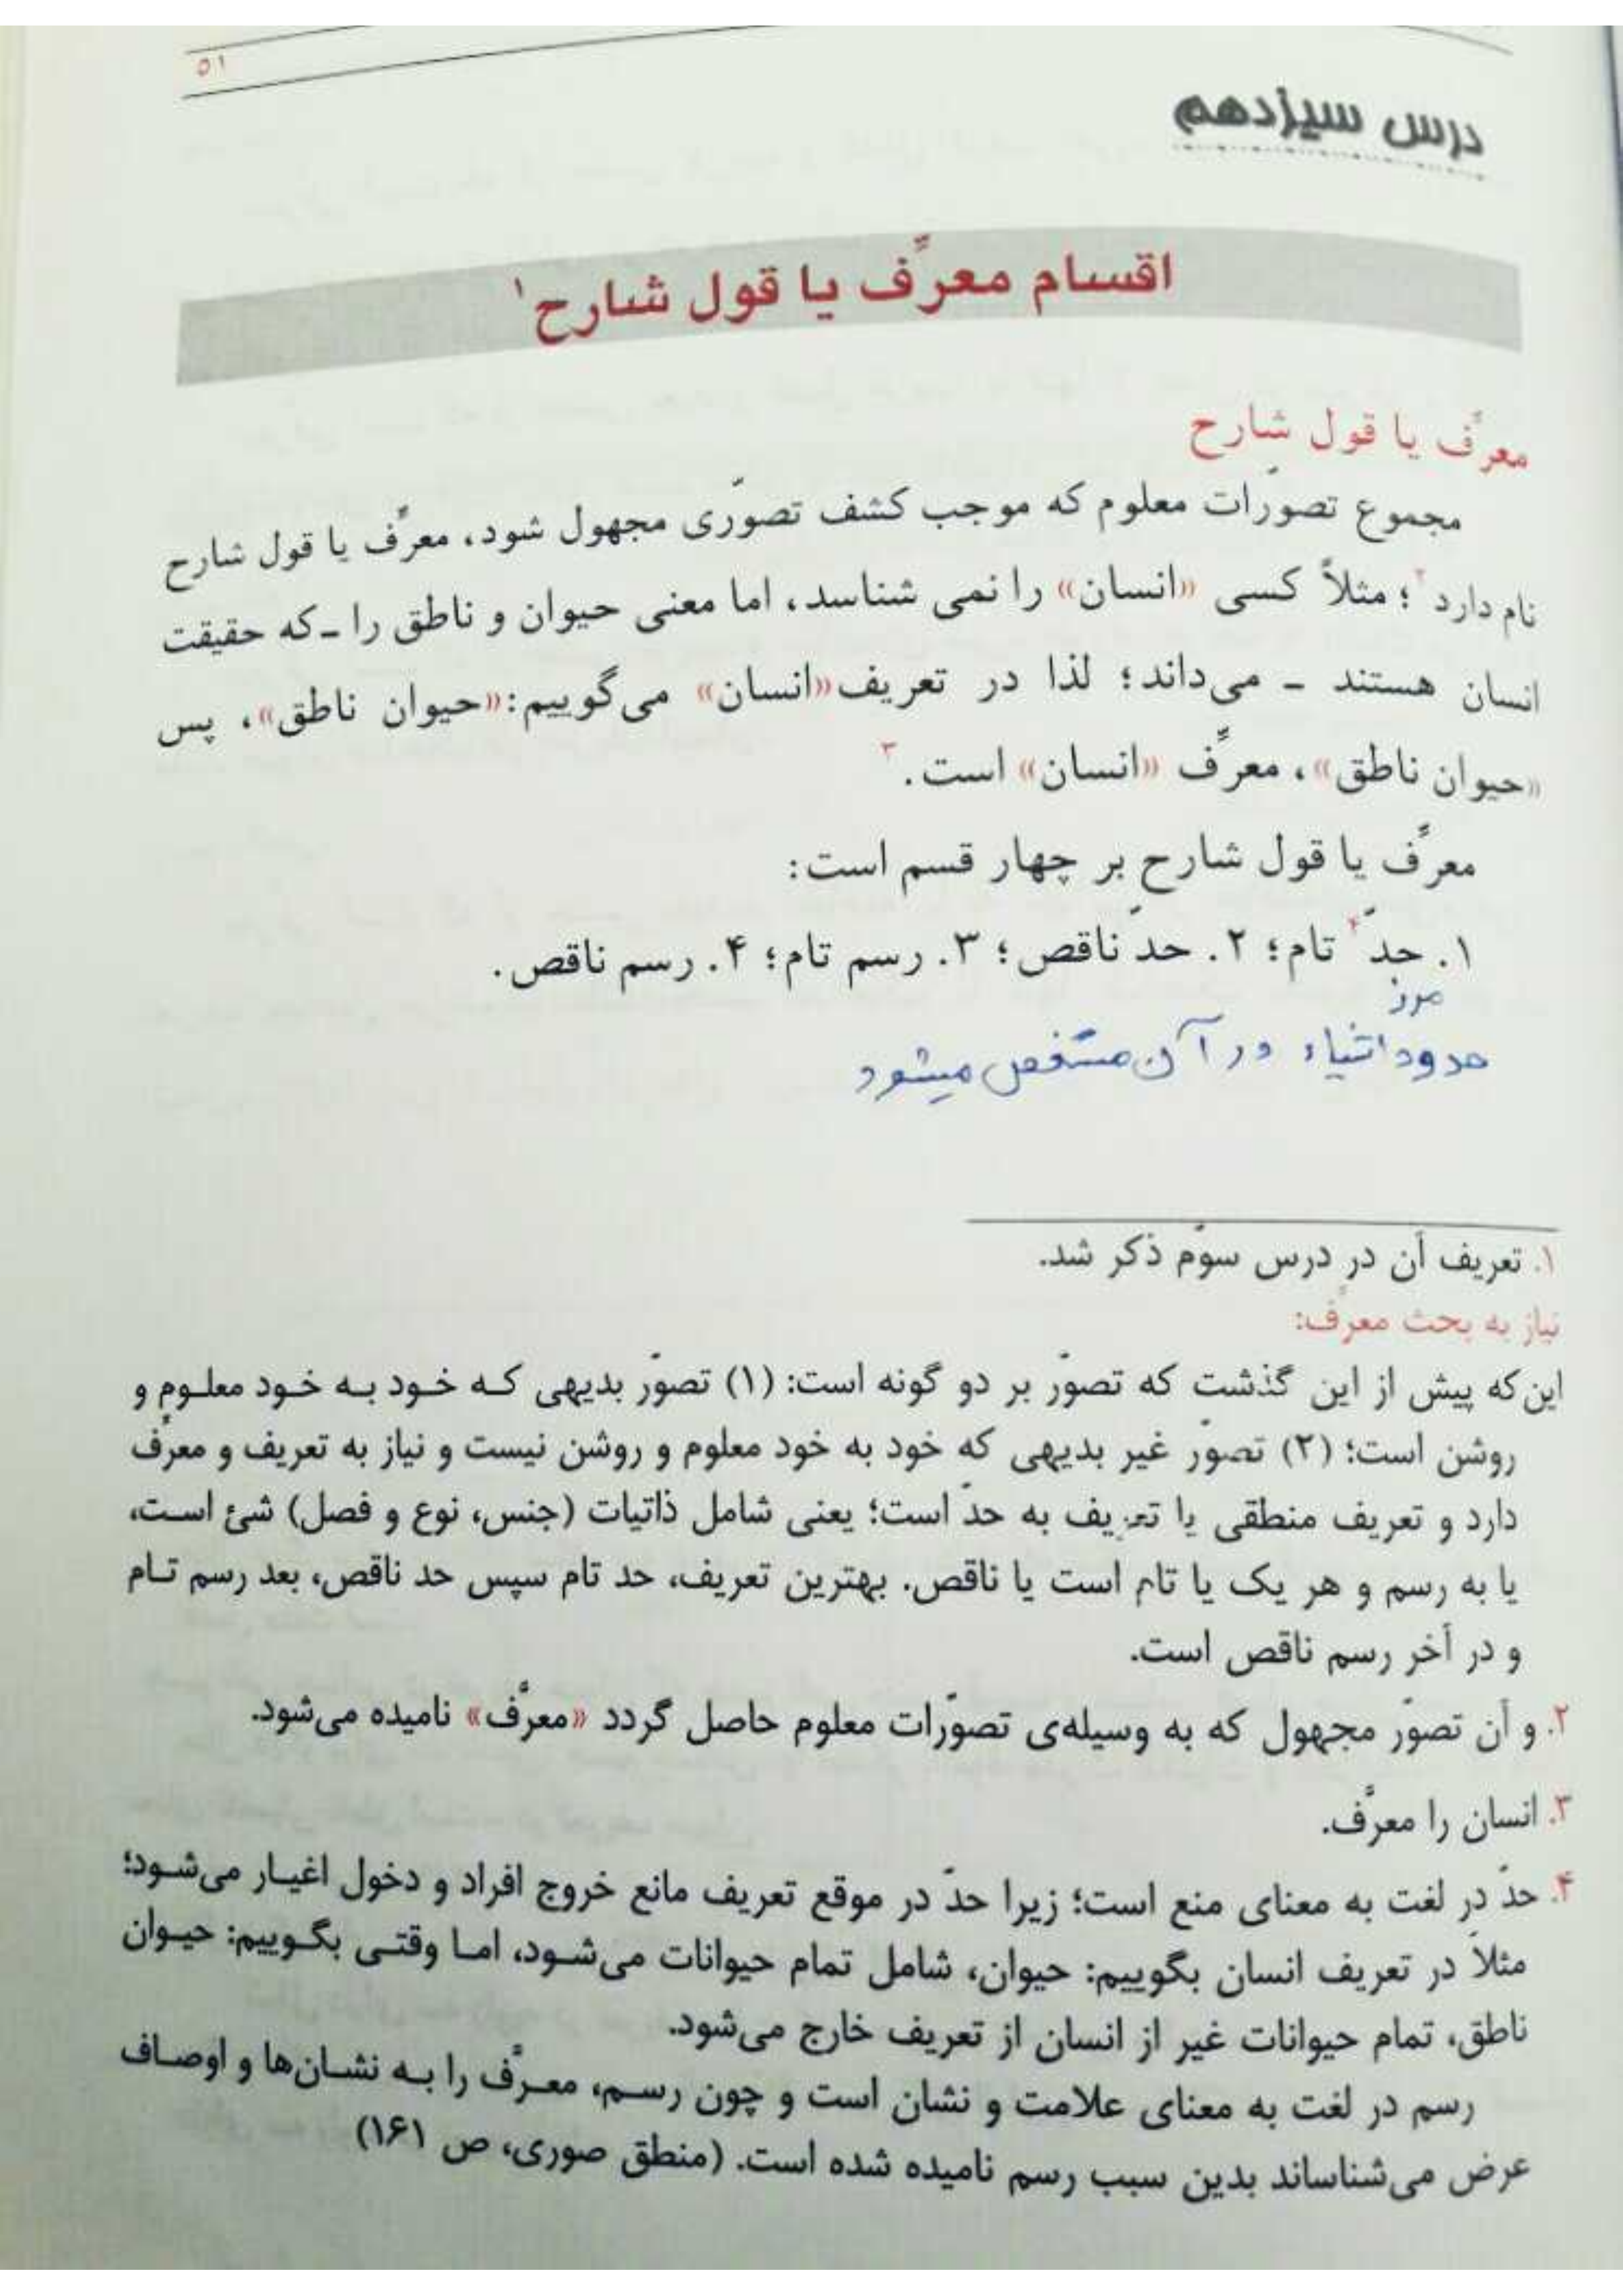 ۵۱
درس سیزدهم
اقسام معرِّف یا قول شارح۱
معرِّف یا قول شارح
مجموع تصوّرات معلوم که موجب کشف تصوّری مجهول شود، معرِّف یا قول شارح
نام دارد۲؛ مثلاً کسی «انسان» را نمی شناسد، اما معنی حیوان و ناطق را ـ که حقیقت
انسان هستند ـ می‌داند؛ لذا در تعریف «انسان» می‌گوییم: «حیوان ناطق»، پس
«حیوان ناطق»، معرِّف «انسان» است.۳
معرِّف یا قول شارح بر چهار قسم است:
۱. حدّ۴ تام؛ ۲. حدّ ناقص؛ ۳. رسم تام؛ ۴. رسم ناقص.
مرز
حدود اشیاء در آن مشخص میشود
۱. تعریف آن در درس سوّم ذکر شد.
نیاز به بحث معرِّف:
این‌که پیش از این گذشت که تصوّر بر دو گونه است: (۱) تصوّر بدیهی که خود به خود معلوم و
روشن است؛ (۲) تصوّر غیر بدیهی که خود به خود معلوم و روشن نیست و نیاز به تعریف و معرِّف
دارد و تعریف منطقی یا تعریف به حدّ است؛ یعنی شامل ذاتیات (جنس، نوع و فصل) شئ است،
یا به رسم و هر یک یا تام است یا ناقص. بهترین تعریف، حد تام سپس حد ناقص، بعد رسم تام
و در آخر رسم ناقص است.
۲. و آن تصوّر مجهول که به وسیله‌ی تصوّرات معلوم حاصل گردد «معرَّف» نامیده می‌شود.
۳. انسان را معرَّف.
۴. حدّ در لغت به معنای منع است؛ زیرا حدّ در موقع تعریف مانع خروج افراد و دخول اغیار می‌شود؛
مثلاً در تعریف انسان بگوییم: حیوان، شامل تمام حیوانات می‌شود، اما وقتی بگوییم: حیوان
ناطق، تمام حیوانات غیر از انسان از تعریف خارج می‌شود.
رسم در لغت به معنای علامت و نشان است و چون رسم، معرَّف را به نشان‌ها و اوصاف
عرض می‌شناساند بدین سبب رسم نامیده شده است. (منطق صوری، ص ۱۶۱)